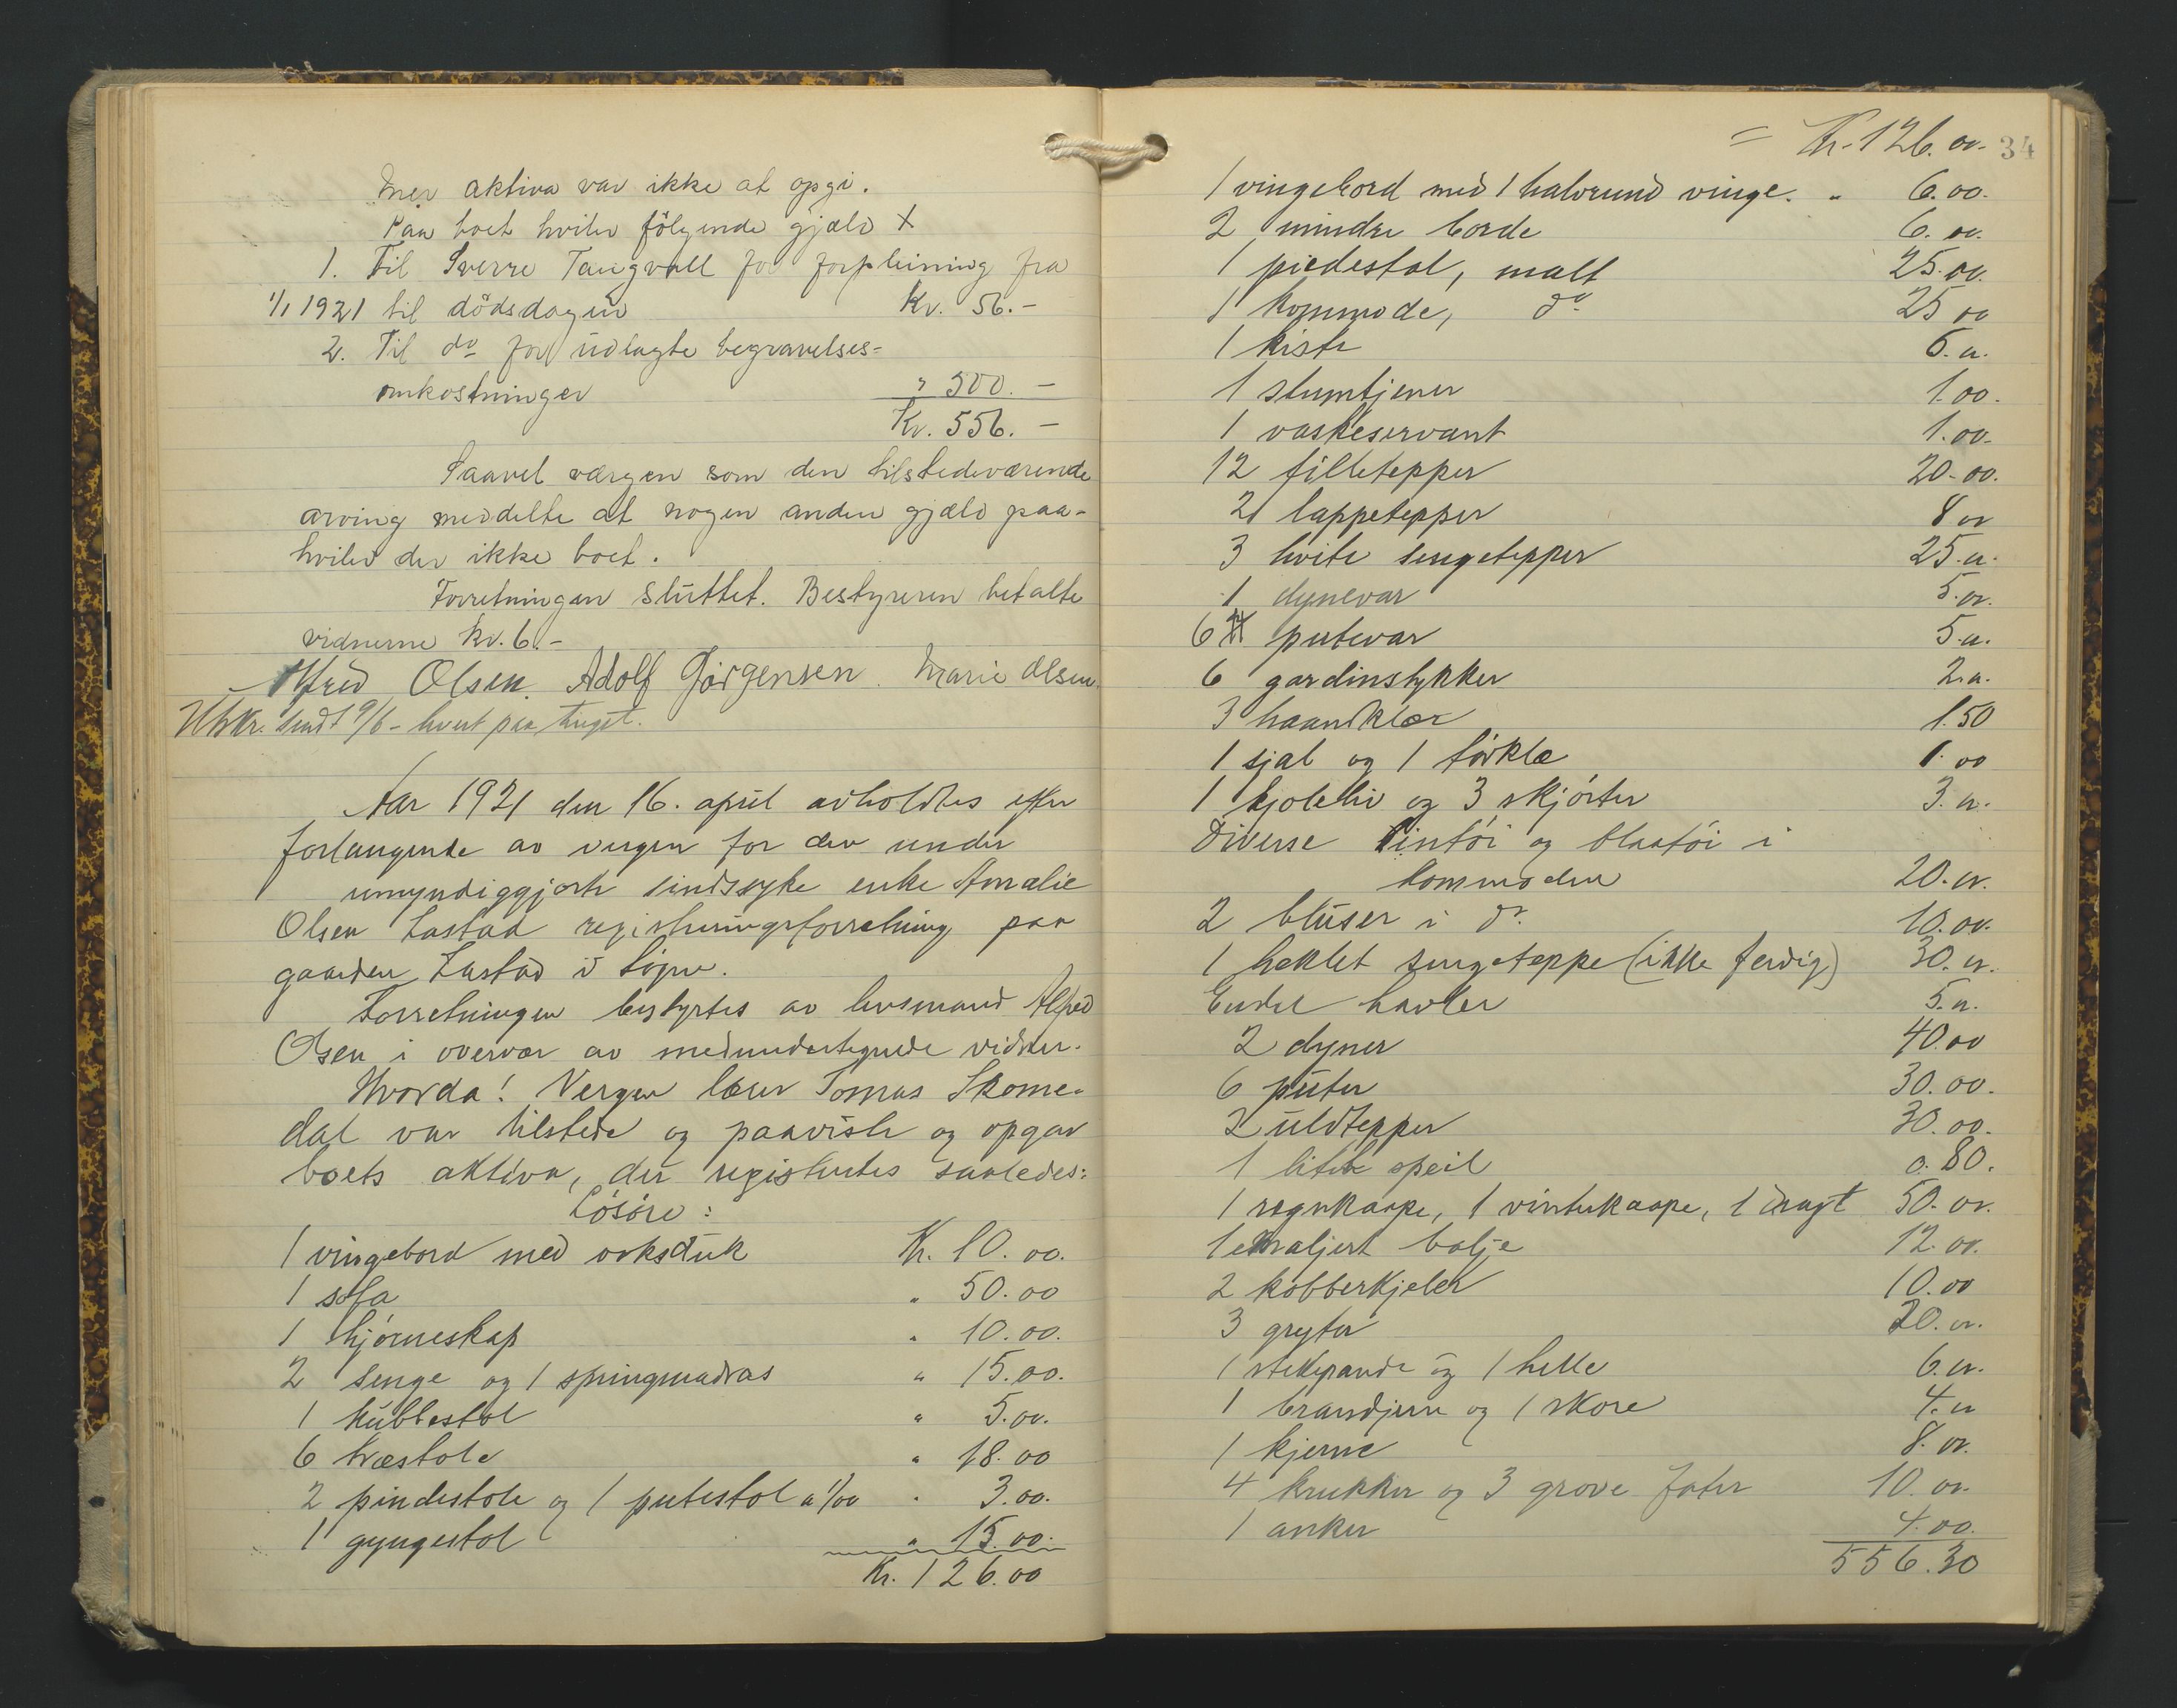 Mer aktiva var ikke at opgi.
Paa boet hviler følgende gjæld X
1. Til Sverre Tangvall for forpleining fra
1/1 1921 til dödsdagen Kr. 56.-
2. Til do for üdlagte begravelses=
omkostninger " 500.-
Kr. 556.-
Saavel værgen som den tilstedeværende
arving meddelte at nogen anden gjæld paa-
hviler der ikke boet.
Forretningen slüttet. Bestyreren betalte
vidnerne kr. 6.-
Alfred Olsen. Adolf Jørgensen. Marie Olsen.
Utskr. sendt 9/6 -
Aar 1921 den 16. april avholdtes efter
forlangende av vergen for den under
umyndiggjorte sindssyke enke Amalie
Olsen Lastad registreringsforretning paa
gaarden Lastad i Søgne.
Forretningen bestyrtes av lensmand Alfred
Olsen i overvær av medundertegnede vidner.
Hvorda! Vergen lærer Tomas Skome-
dal var tilstede og paaviste og opgav
boets aktiva, der registrertes saaledes:
Løsøre:
1 vingebord med voksdük Kr. 10.00.
1 sofa " 50.00
1 hjørneskap " 10.00.
2 senge og 1 springmadras " 15.00.
1 kübbestol " 5.00.
6 træstole " 18.00
2 pindestole og 1 putestol a 1/00 " 3.00.
1 gyngestol " 15.00.
Kr. 126.00
= Kr. 126.00. 34
1 vingebord med 1 halvrund vinge. " 6.00.
2 mindre borde 6.00.
1 piedestal, malt 25.00.
1 kommode, do 25 00
1 kiste 6.00.
1 stumtjener 1.00.
1 vaskeservant 1.00.
12 filletepper 20.00.
2 lappetepper 8 00
3 hvite sengetepper 25.00.
1 dynevar 5.00.
6 putevar 5.00.
6 gardinstykker 2.00.
3 haandklær 1.50
1 sjal og 1 tørklæ 1.00
1 kjoleliv og 3 skjørter 3.00.
Diverse lintøi og blaatøi i
kommoden 20.00.
2 blüser i do. 10.00.
1 heklet sengeteppe (ikke ferdig) 30.00.
Endel karler 5.00.
2 dyner 40.00
6 püter 30.00.
2 üldtepper 30.00.
1 litet speil 0.80.
1 regnkaape, 1 vinterkaape, 1 dragt 50.00.
1 emaljert balje 12.00.
2 kobberkjeler 10.00
3 gryter 20.00.
1 stekepande og 1 helle 6.00.
1 brandjern og 1 skore 4.00
1 kjerne 8.00.
4 krukker og 3 grove fater 10.00.
1 anker 4.00.
556.30